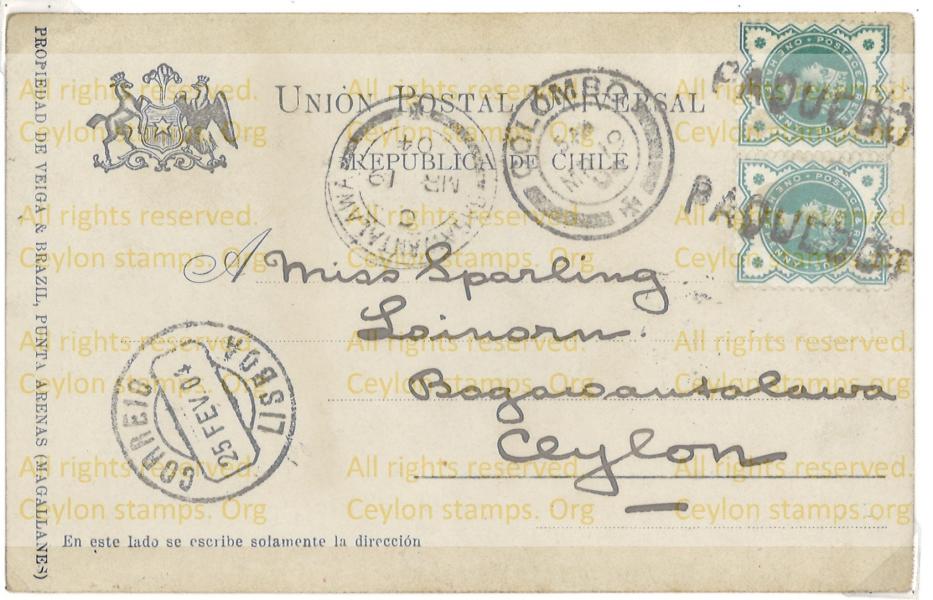 PROPIEDAD DE VEIGA & BRAZIL, PUNTA ARENAS (MAGALLANES)
UNIÓN POSTAL UNIVERSAL
REPÚBLICA DE CHILE
POSTAGE
POSTAGE
PAQUEBO
PAQUEBOT
COLOMBO
MR
04
A Miss Sparling
Loinorn.
Bogawantalawa
Ceylon
CORREIO
25 FEV 04
LISBOA
En este lado se escribe solamente la dirección
All rights reserved.
Ceylon stamps. Org